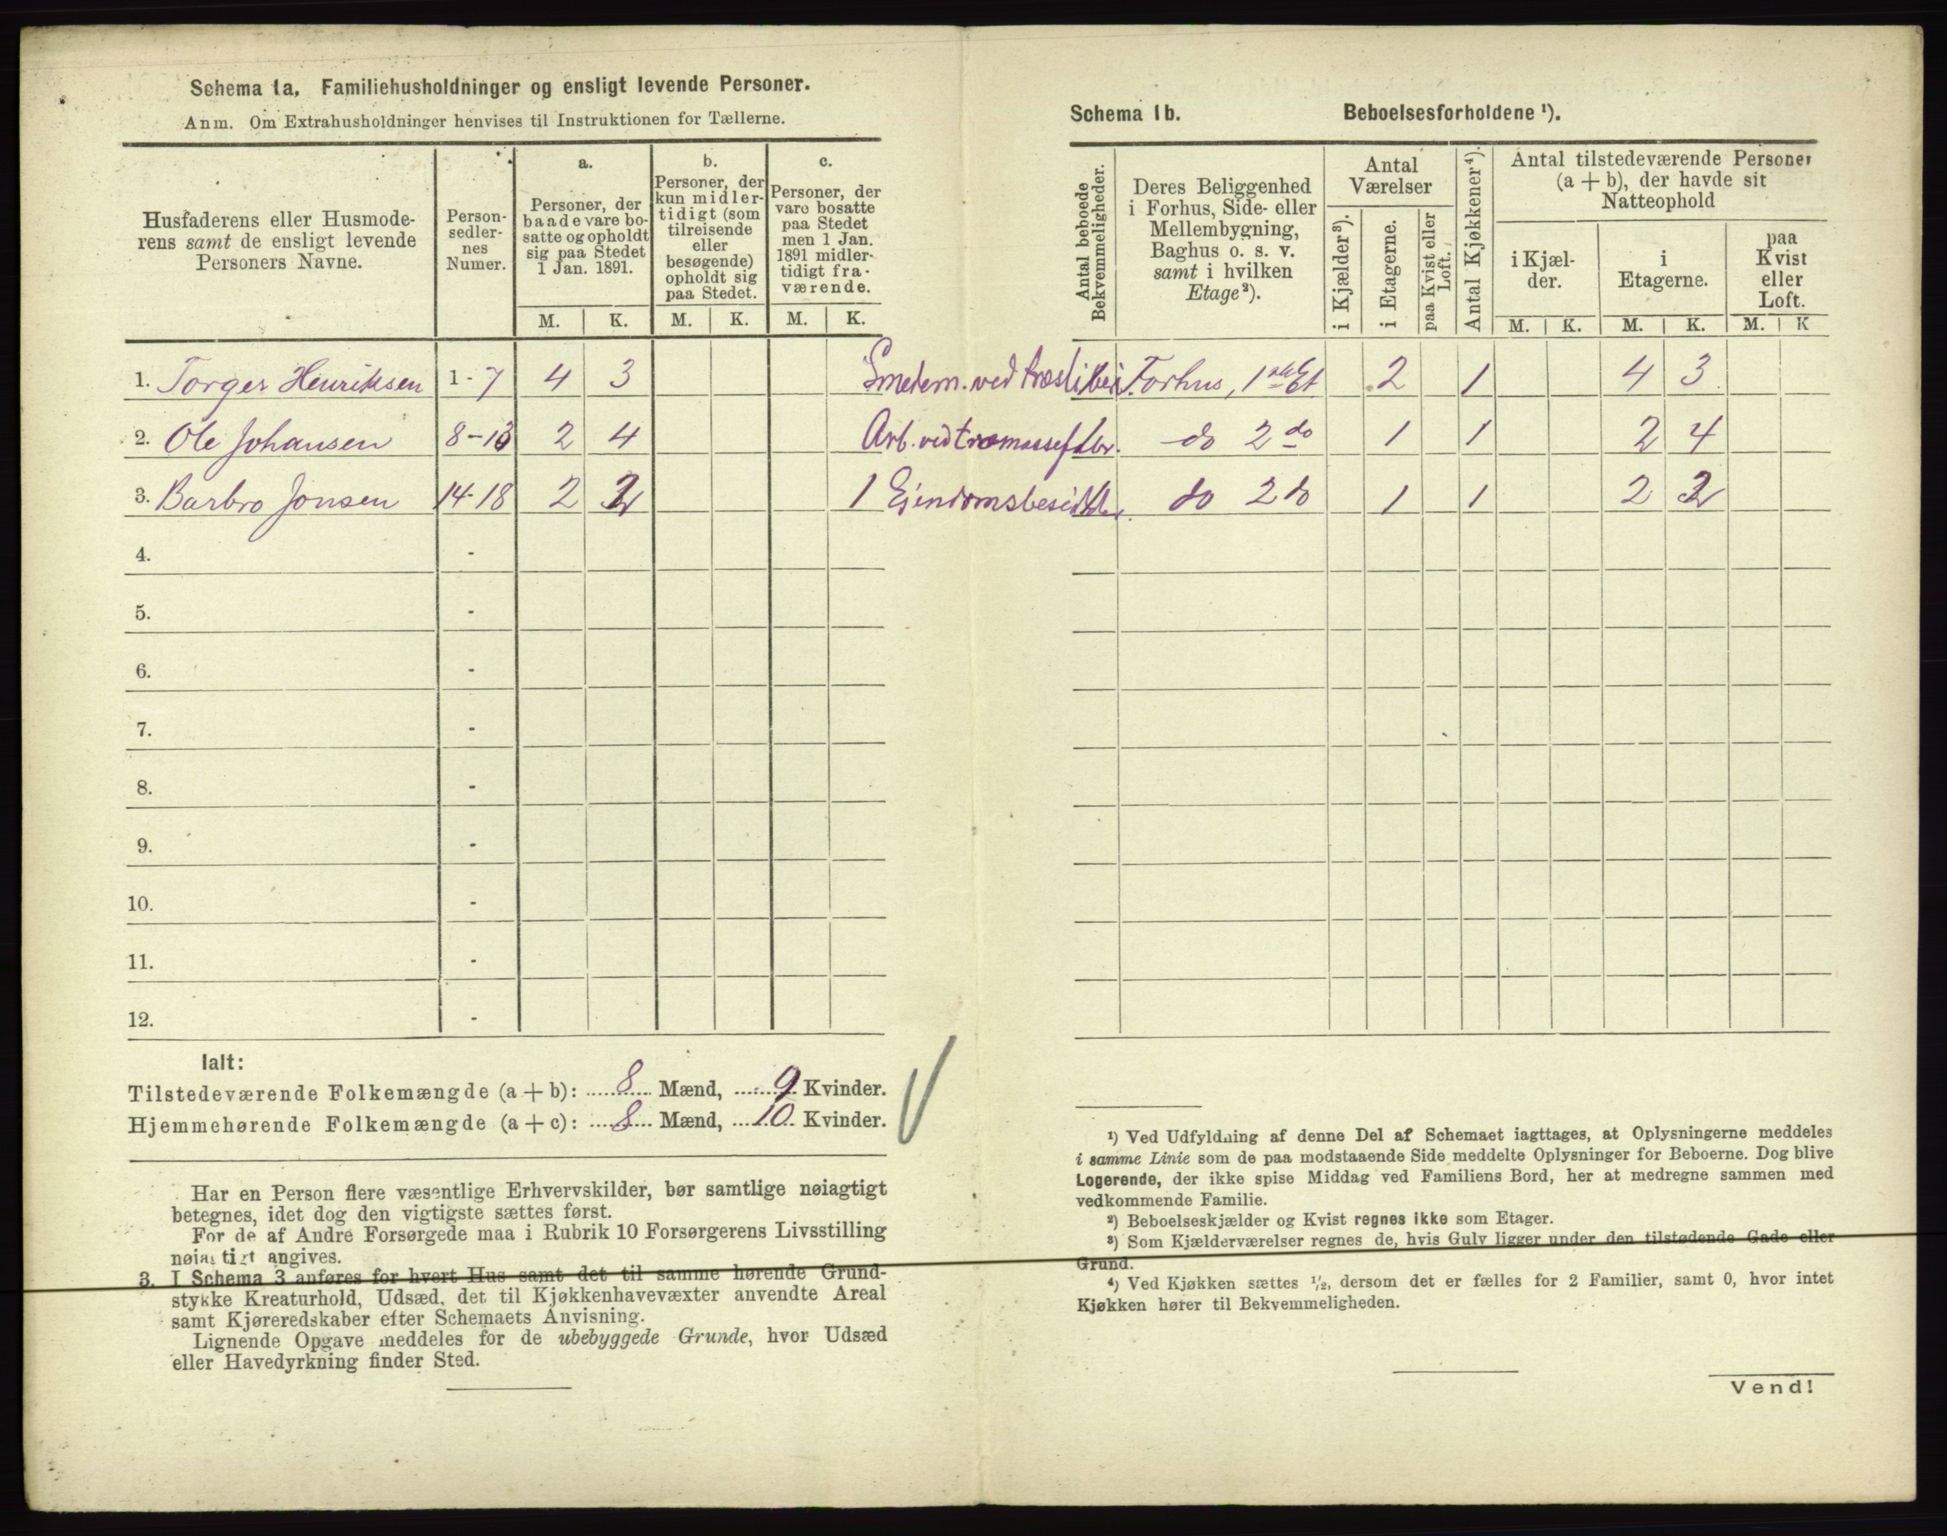 Schema 1a. Familiehusholdninger og ensligt levende Personer.
Anm. Om Extrahusholdninger henvises til Instruktionen for Tællerne.
Husfaderens eller Husmode-
rens samt de ensligt levende
Personers Navne.
Person-
sedler-
nes
Numer.
a.
Personer, der
baade vare bo-
satte og opholdt
sig paa Stedet
1 Jan. 1891.
b.
Personer, der
kun midler-
tidigt (som
tilreisende
eller
besøgende)
opholdt sig
paa Stedet.
c.
Personer, der
vare bosatte
paa Stedet
men 1 Jan.
1891 midler-
tidigt fra-
værende.
M. K. M. K. M. K.
1. Torger Henriksen 1-7 4 3
2. Ole Johansen 8-13 2 4
3. Barbro Jonsen 14-18 2 2 1
4. -
5. -
6. -
7. -
8. -
9. -
10. -
11. -
12. -
Ialt:
Tilstedeværende Folkemængde (a + b): 8 Mænd, 9 Kvinder.
Hjemmehørende Folkemængde (a + c): 8 Mænd, 10 Kvinder.
Har en Person flere væsentlige Erhvervskilder, bør samtlige nøiagtigt
betegnes, idet dog den vigtigste sættes først.
For de af Andre Forsørgede maa i Rubrik 10 Forsørgerens Livsstilling
nøiagtigt angives.
3. I Schema 3 anføres for hvert Hus samt det til samme hørende Grund-
stykke Kreaturhold, Udsæd, det til Kjøkkenhavevæxter anvendte Areal
samt Kjøreredskaber efter Schemaets Anvisning.
Lignende Opgave meddeles for de ubebyggede Grunde, hvor Udsæd
eller Havedyrkning finder Sted.
Schema 1b. Beboelsesforholdene ¹).
Antal beboede
Bekvemmeligheder.
Deres Beliggenhed
i Forhus, Side- eller
Mellembygning,
Baghus o. s. v.
samt i hvilken
Etage²).
Antal
Værelser
i Kjælder³).
i Etagerne.
paa Kvist eller
Loft.
Antal Kjøkkener⁴).
Antal tilstedeværende Personer
(a + b), der havde sit
Natteophold
i Kjæl-
der.
i
Etagerne.
paa
Kvist
eller
Loft.
M. K. M. K. M. K
Smedem. ved Forhus, 1ste Et 2 1 4 3
Arb. ved træmassefabr. do 2 do 1 1 2 4
Ejendomsbesidder. do 2 do 1 1 2 2
¹) Ved Udfyldning af denne Del af Schemaet iagttages, at Oplysningerne meddeles
i samme Linie som de paa modstaaende Side meddelte Oplysninger for Beboerne. Dog blive
Logerende, der ikke spise Middag ved Familiens Bord, her at medregne sammen med
vedkommende Familie.
²) Beboelseskjælder og Kvist regnes ikke som Etager.
³) Som Kjælderværelser regnes de, hvis Gulv ligger under den tilstødende Gade eller
Grund.
⁴) Ved Kjøkken sættes ½, dersom det er fælles for 2 Familier, samt 0, hvor intet
Kjøkken hører til Bekvemmeligheden.
Vend!